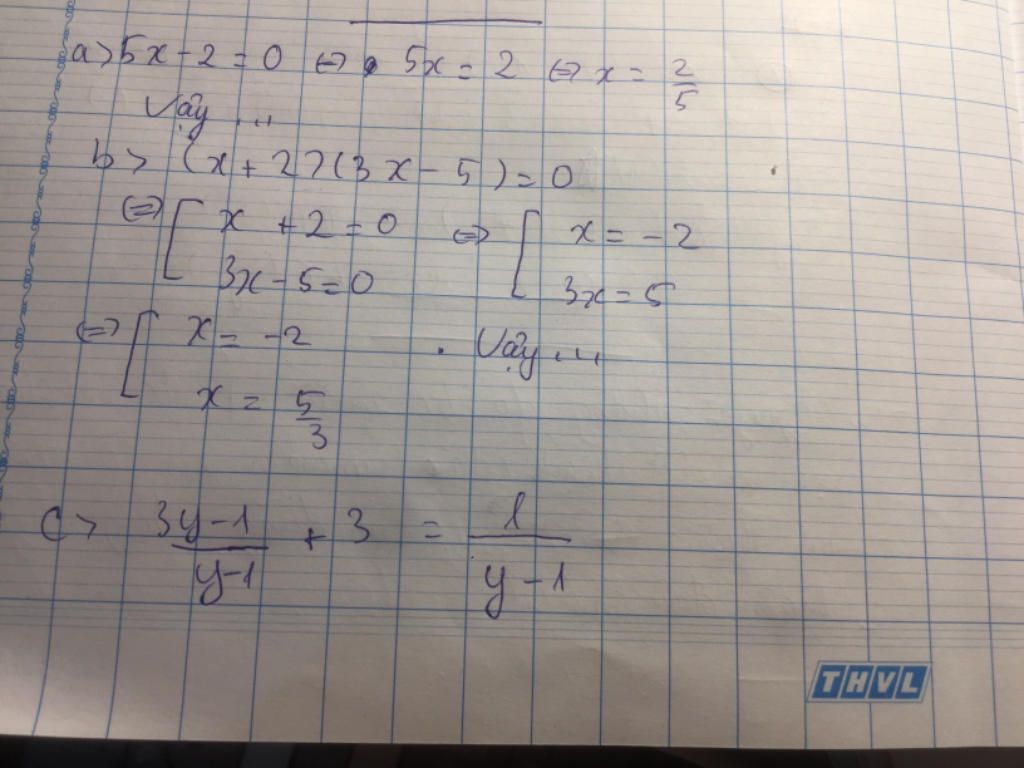 a> 5x - 2 = 0 ⇔ 5x = 2 ⇔ x = 2/5
Vậy ...
b> (x + 2)(3x - 5) = 0
⇔ [ x + 2 = 0 ⇔ [ x = -2
3x - 5 = 0 3x = 5
⇔ [ x = -2 . Vậy ...
x = 5/3
c> (3y - 1)/(y - 1) + 3 = 1/(y - 1)
THVL